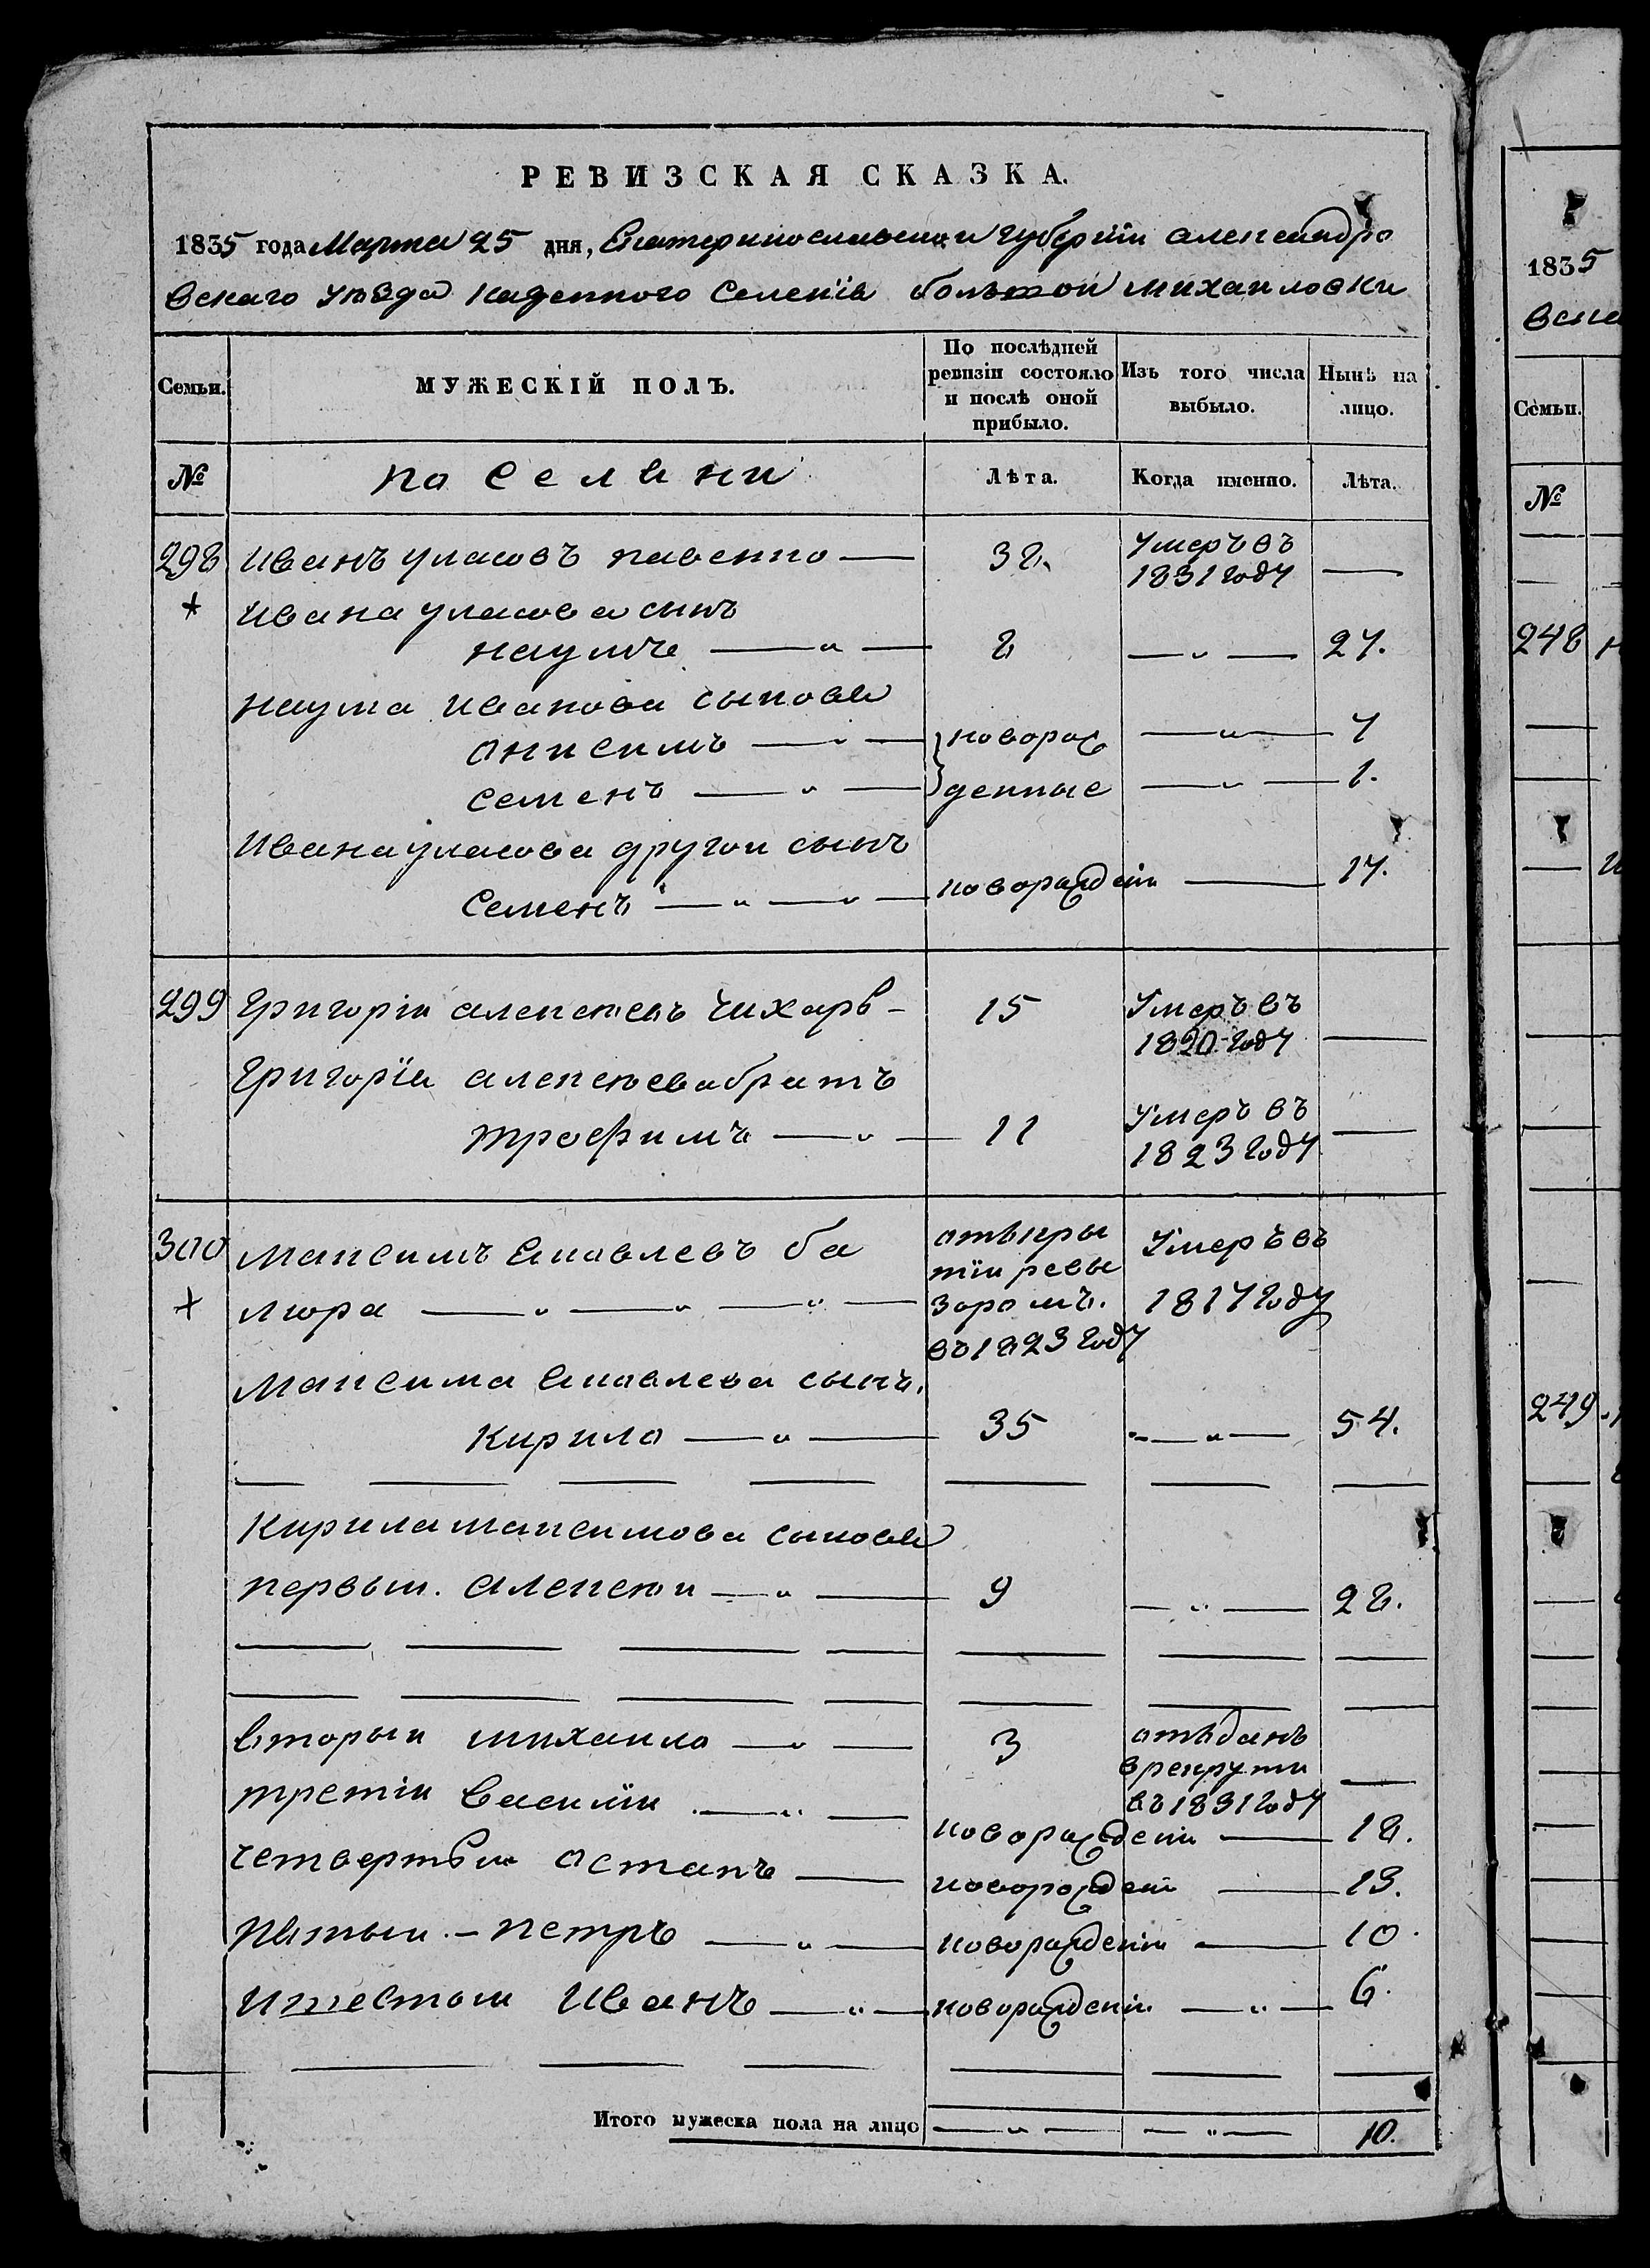 РЕВИЗСКАЯ СКАЗКА.
1835 года Марта 25 дня, Екатеринославской Губернiи Александро
вскаго уѣзда казенного Селенiя большой михаиловки
Семьи. МУЖЕСКIЙ ПОЛЪ. По послѣдней ревизiи состояло и послѣ оной прибыло. Изъ того числа выбыло. Нынѣ на лицо.
№ поселяни Лѣта. Когда именно. Лѣта.
298 Иванъ уласовъ павенко — 38. Умеръ въ 1831 году —
Ивана уласова сынъ
наумъ — 8 — 27.
наума Иванова сыновя
онисимъ — новорож — 7
семенъ — денные — 1.
Ивана уласова другои сынъ
Семенъ — новорожденiи — 17.
299 Григорiи алексеевъ Чихарь — 15 Умеръ въ 1820 году —
Григорiя алексеева братъ
трофимъ — 11 Умеръ въ 1823 году —
300 максимъ яковлевъ ба
люра — открытiи ревизоромъ. въ 1823 году Умеръ въ 1817 году
Максима яковлева сынъ.
Кирило — 35 — 54.
Кирила максимова сыновя
первыи. алексеи — 9 — 28.
вторыи михаило — 3 отъданъ в рекруты въ 1831 году —
третiи василiи — новорожденiи — 18.
четвертыи остапъ — новорожденiи — 13.
пятыи — петръ — новорожденiи — 10.
и шестои Иванъ — новорожденiи — 6.
Итого мужеска пола на лицо — 10.
1835
вска
Семьи.
№
248
249